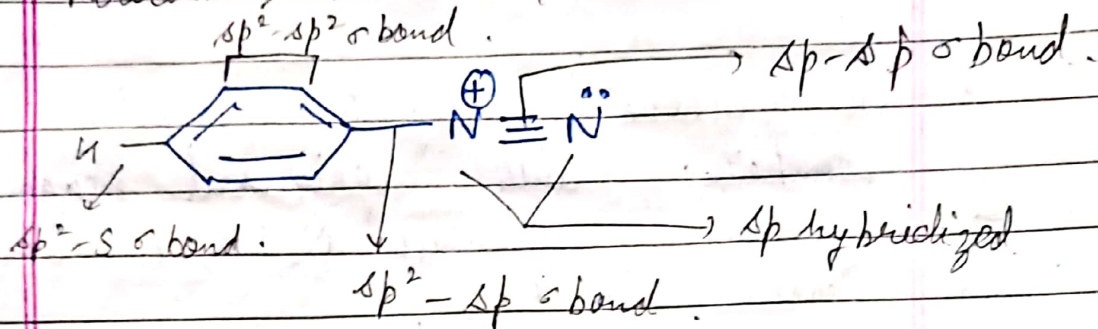 sp²-sp² σ bond.
sp-sp σ bond.
H N⊕ ≡ N̈
sp²-s σ bond.
sp hybridized
sp² - sp σ bond.